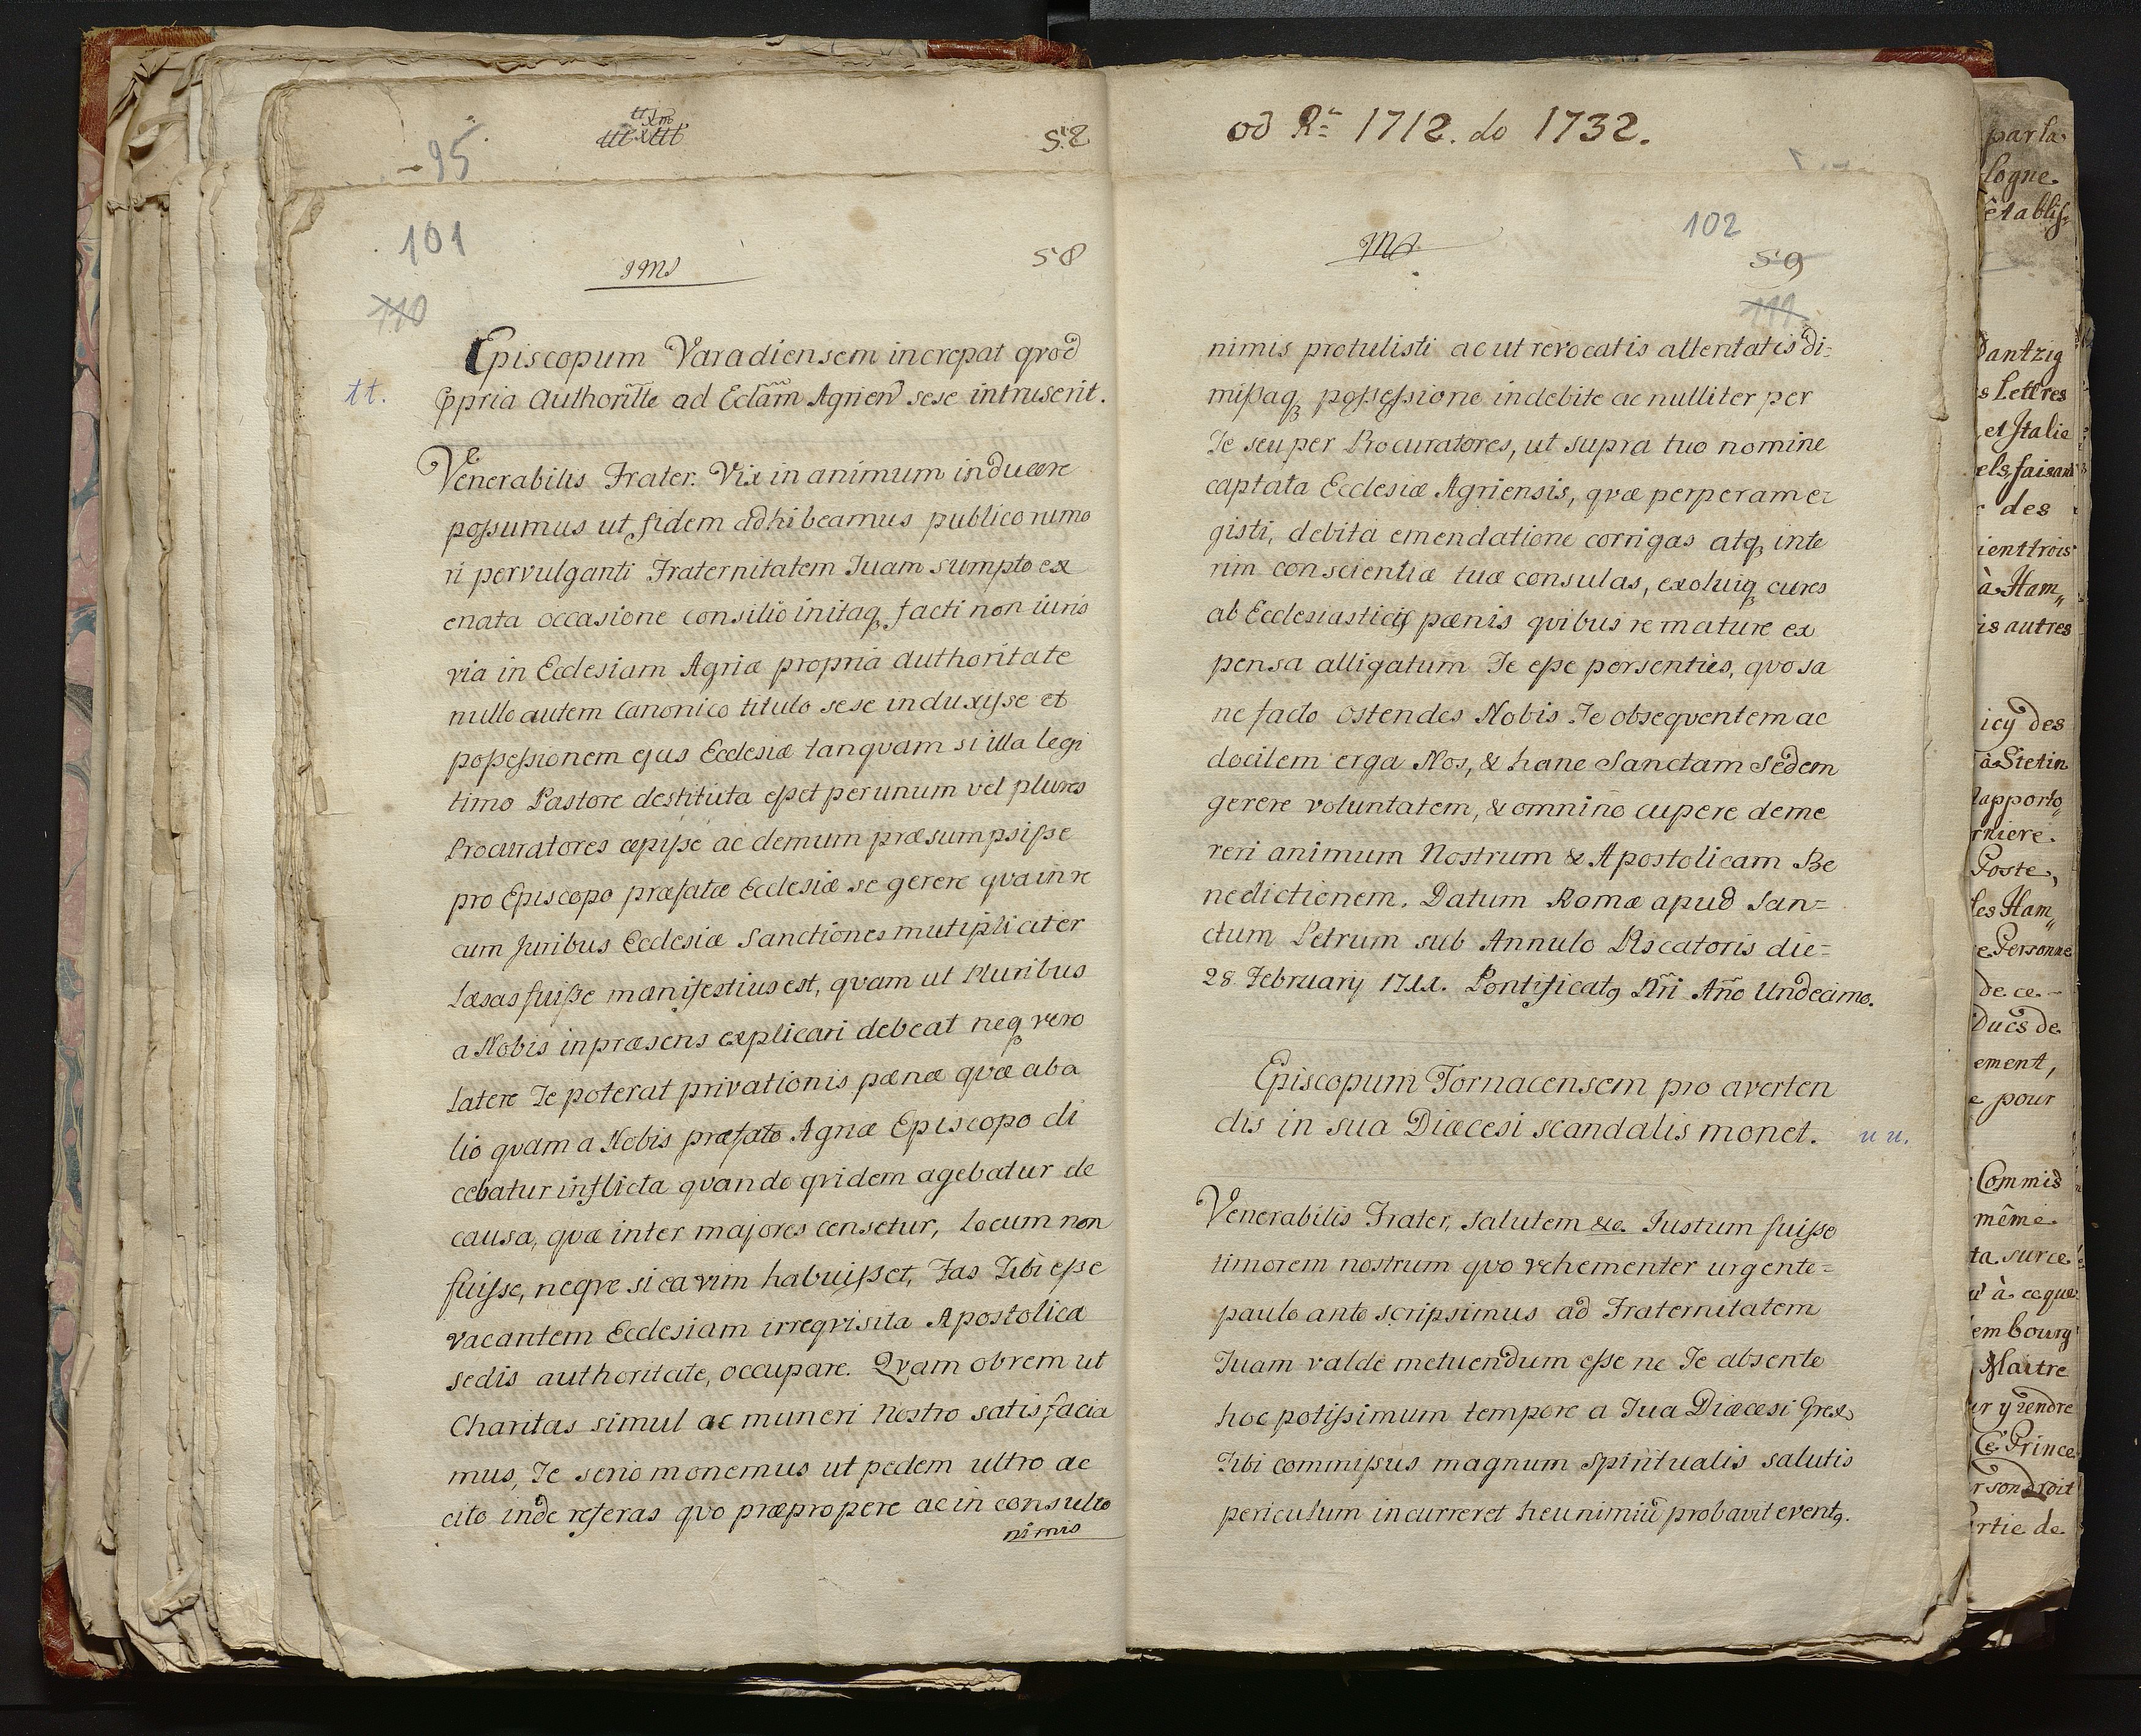 95
S.8
101
S8
110
Episcopum Varadiensem increpat qvod
tt.
ppria Authoritte ad Eclam Agrien sese intruserit.
Venerabilis Frater. Vix in animum inducere
possumus ut fidem adhibeamus publico rumo
ri pervulganti Fraternitatem Tuam sumpto ex
enata occasione consilio initaq facti non iuris
via in Ecclesiam Agriæ propria Authoritate
nullo autem Canonico titulo sese induxisse et
possessionem ejus Ecclesiæ tanqvam si illa legi
timo Pastore destituta esset per unum vel plures
Procuratores cœpisse ac demum præsumpsisse
pro Episcopo præfatæ Ecclesiæ se gerere qva in re
cum Juribus Ecclesiæ Sanctiones mutipliciter
Læsas fuisse manifestius est, qvam ut Pluribus
a Nobis in præsens explicari debeat neq vero
Latere Te poterat privationis pænæ qvæ ab a
lio qvam a Nobis præfato Agriæ Episcopo di
cebatur inflicta qvando qvidem agebatur de
causa, qvæ inter majores censetur, Locum non
fuisse, neqve si ea vim habuisset, Fas Tibi esse
vacantem Ecclesiam irreqvisita Apostolica
sedis authoritate, occupare. Qvam obrem ut
Charitas simul ac muneri Nostro satisfacia
mus, Te serio monemus ut pedem ultro ac
cito inde referas qvo præpropere ac in consulto
nimis
od Rᵘ 1712. do 1732.
102
S9
111
nimis protulisti ac ut revocatis attentatis di=
missaq possessione indebite ac nulliter per
Te seu per Procuratores, ut supra tuo nomine
captata Ecclesiæ Agriensis, qvæ perperam e=
gisti, debita emendatione corrigas atq inte
rim conscientiæ tuæ consulas, exoluiq cures
ab Ecclesiasticis pænis qvibus re mature ex
pensa alligatum Te esse persenties, qvo sa
ne facto ostendes Nobis Te obseqventem ac
docilem erga Nos, & hanc Sanctam Sedem
gerere voluntatem, & omnino cupere deme
reri animum Nostrum & Apostolicam Be
nedictionem. Datum Romæ apud San=
ctum Petrum sub Annulo Piscatoris die=
28 February 1711. Pontificatq Nri Año Undecimo.
Episcopum Tornacensem pro averten
dis in sua Diæcesi scandalis monet.
u u.
Venerabilis Frater, Salutem &c. Justum fuisse
timorem nostrum qvo vehementer urgente=
paulo ante scripsimus ad Fraternitatem
Tuam valde metuendum esse ne Te absente
hoc potissimum tempore a Tua Diæcesi Grex
Tibi commissus magnum Spiritualis salutis
periculum incurreret heu nimiũ probavit eventq.
par la
logne.
êtablis,
Dantzig
s Lettres
et Italie
els, faisant
des
ient trois
à Ham,,
is autres
icy des
à Stetin
rniere.
Poste,
les Ham,,
e Personne
de ce
Ducs de
ement,
e pour
Commis
même
ta surce
à ce que
embourg
Maitre
ir y rendre
Ce Prince
r son droit
rtie de